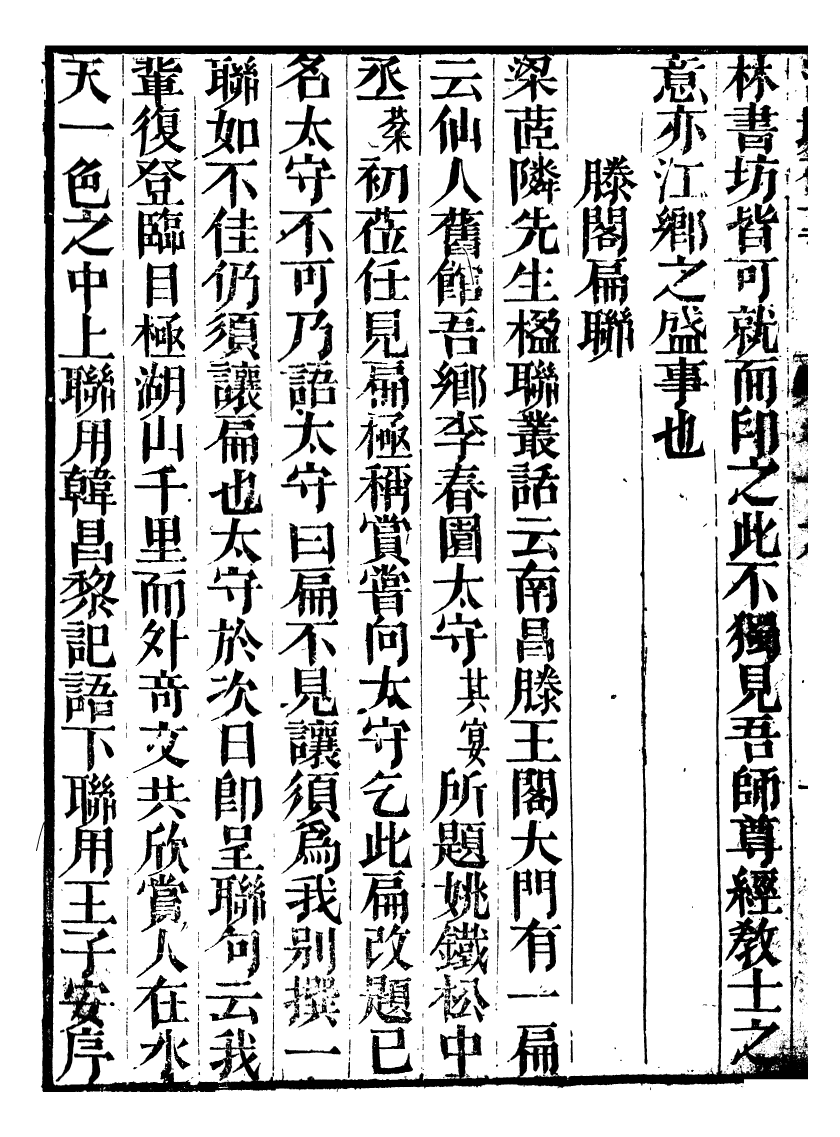 林書坊皆可就而印之此不獨見吾師尊經敎士之
意亦江鄉之盛事也
滕閣扁聯
梁茝隣先生楹聯叢話云南昌滕王閣大門有一扁
云仙人舊館吾鄉李春園太守其宴所題姚鐵松中
丞棻初莅任見扁極稱賞嘗向太守乞此扁改題已
名太守不可乃語太守曰扁不見讓須爲我別撰一
聯如不佳仍須讓扁也太守於次日卽呈聯句云我
輩復登臨目極湖山千里而外奇文共欣賞人在水
天一色之中上聯用韓昌黎記語下聯用王子安序